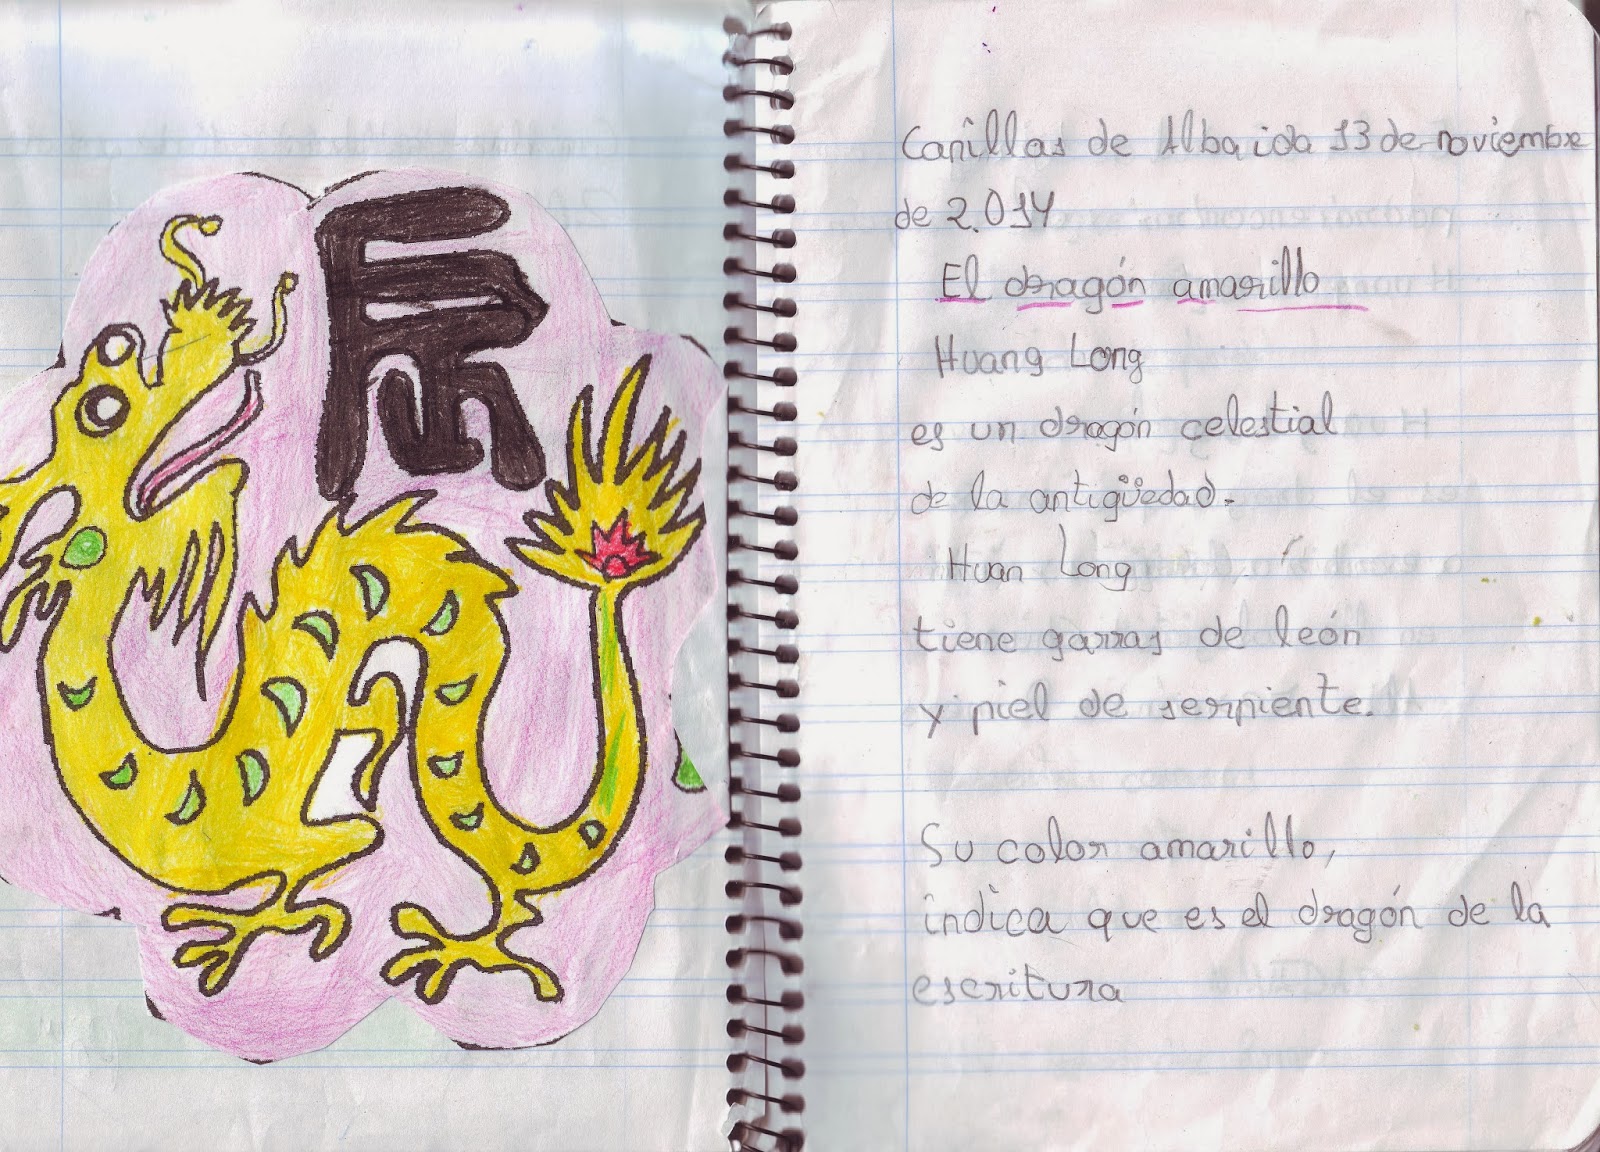 辰
Canillas de Albaida 13 de noviembre
de 2.014
El dragón amarillo
Huang Long
es un dragón celestial
de la antigüedad.
Huan Long
tiene garras de león
y piel de serpiente.
Su color amarillo,
indica que es el dragón de la
escritura